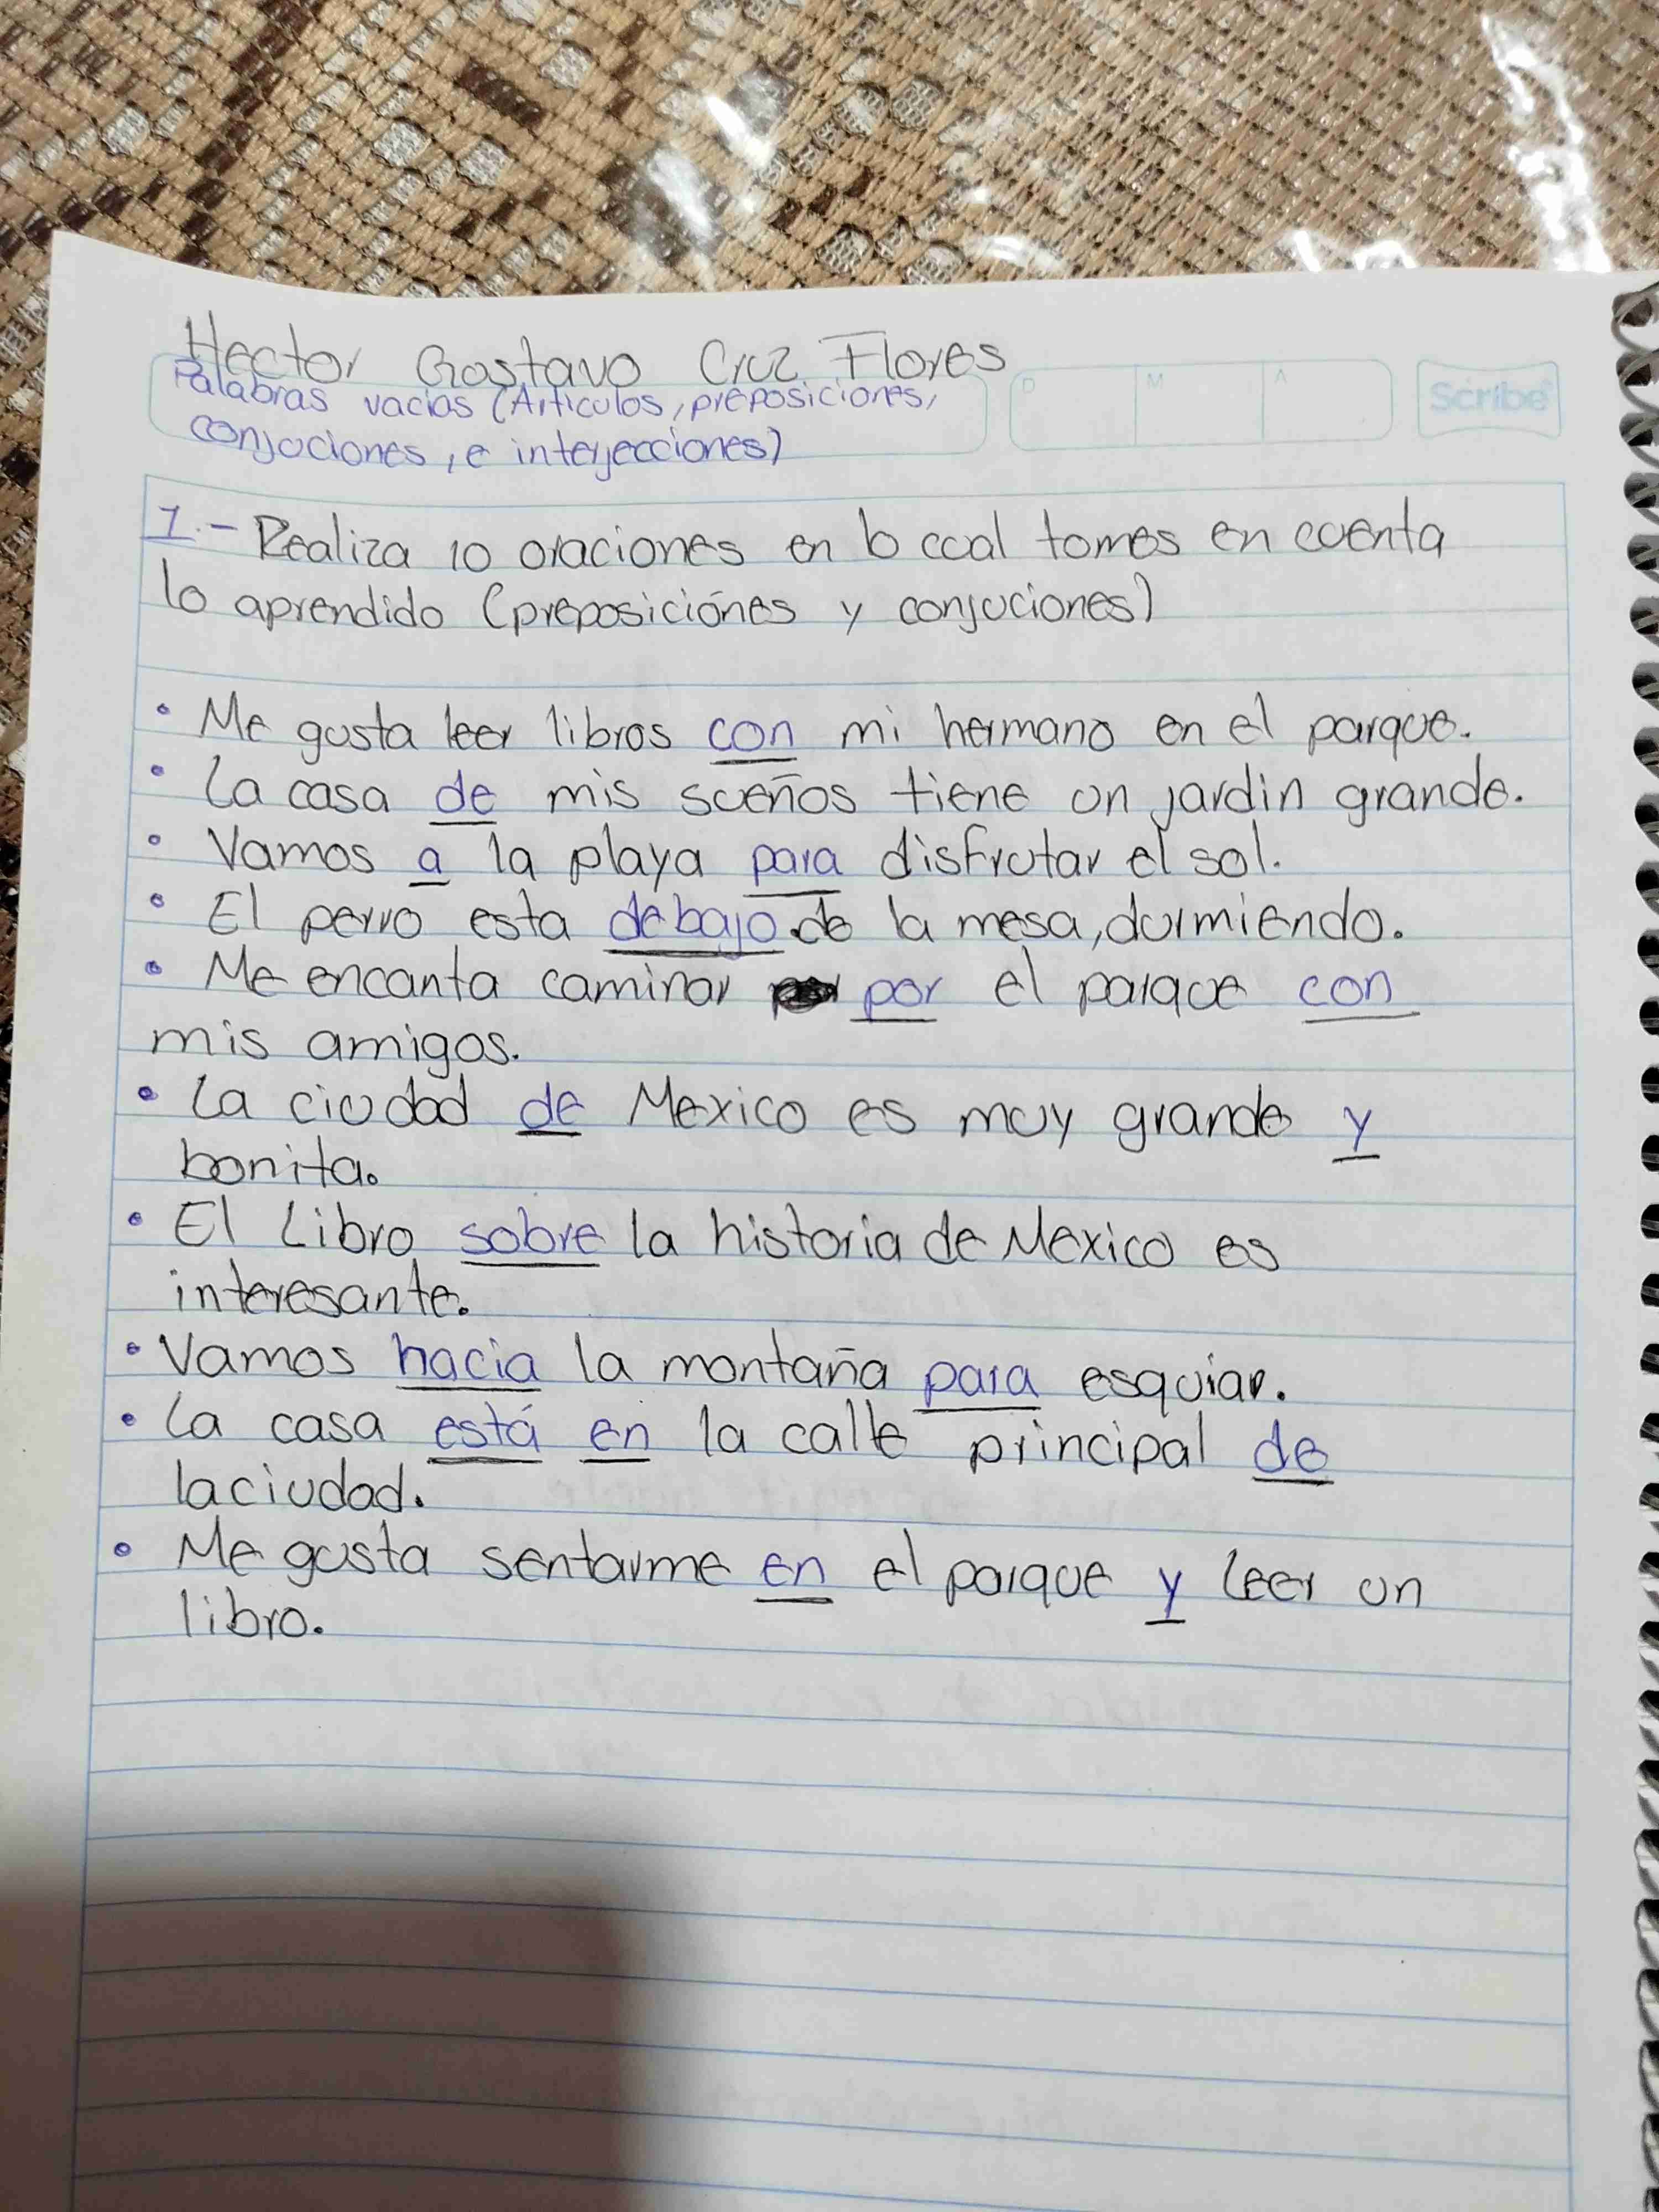 Hector Gustavo Cruz Flores
Palabras vacias (Articulos, preposiciones,
conjuciones, e interjecciones)
D M A
Scribe
1.- Realiza 10 oraciones en lo cual tomes en cuenta
lo aprendido (preposiciónes y conjuciones)
• Me gusta leer libros con mi hermano en el parque.
• La casa de mis sueños tiene un jardin grande.
• Vamos a la playa para disfrutar el sol.
• El perro esta debajo de la mesa, durmiendo.
• Me encanta caminar por el parque con
mis amigos.
• La ciudad de Mexico es muy grande y
bonita.
• El Libro sobre la historia de Mexico es
interesante.
• Vamos hacia la montaña para esquiar.
• La casa está en la calle principal de
la ciudad.
• Me gusta sentarme en el parque y leer un
libro.